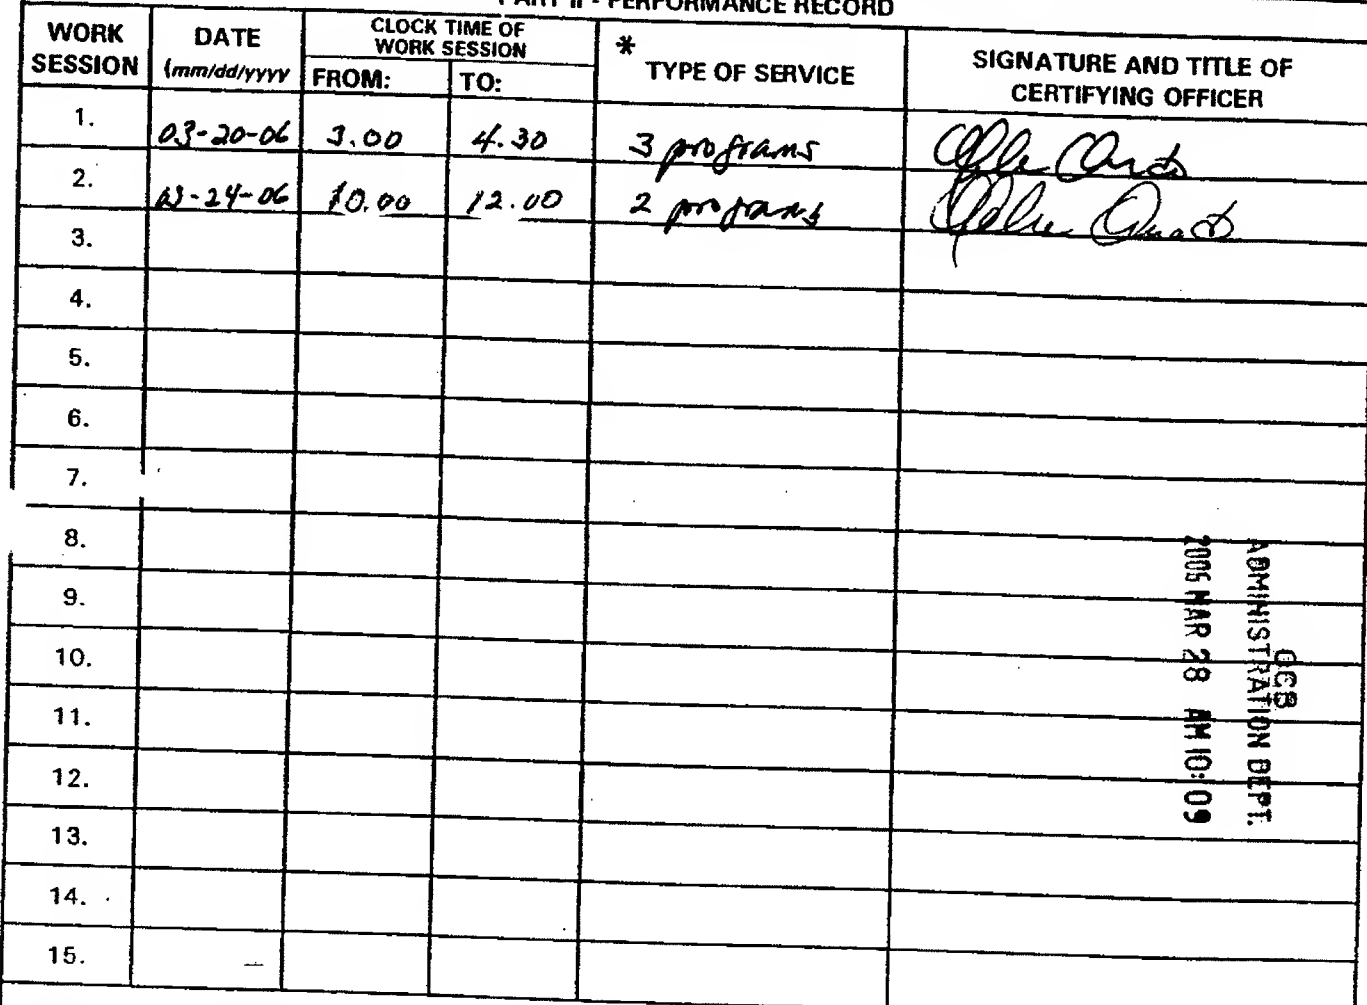 PART II - PERFORMANCE RECORD
WORK SESSION
DATE (mm/dd/yyyy
CLOCK TIME OF WORK SESSION
FROM:
TO:
* TYPE OF SERVICE
SIGNATURE AND TITLE OF CERTIFYING OFFICER
1. 03-20-06 3.00 4.30 3 programs
2. 03-24-06 10.00 12.00 2 programs
3.
4.
5.
6.
7.
8.
9.
10.
11.
12.
13.
14.
15.
OCB
ADMINISTRATION DEPT.
2006 MAR 28 AM 10:09